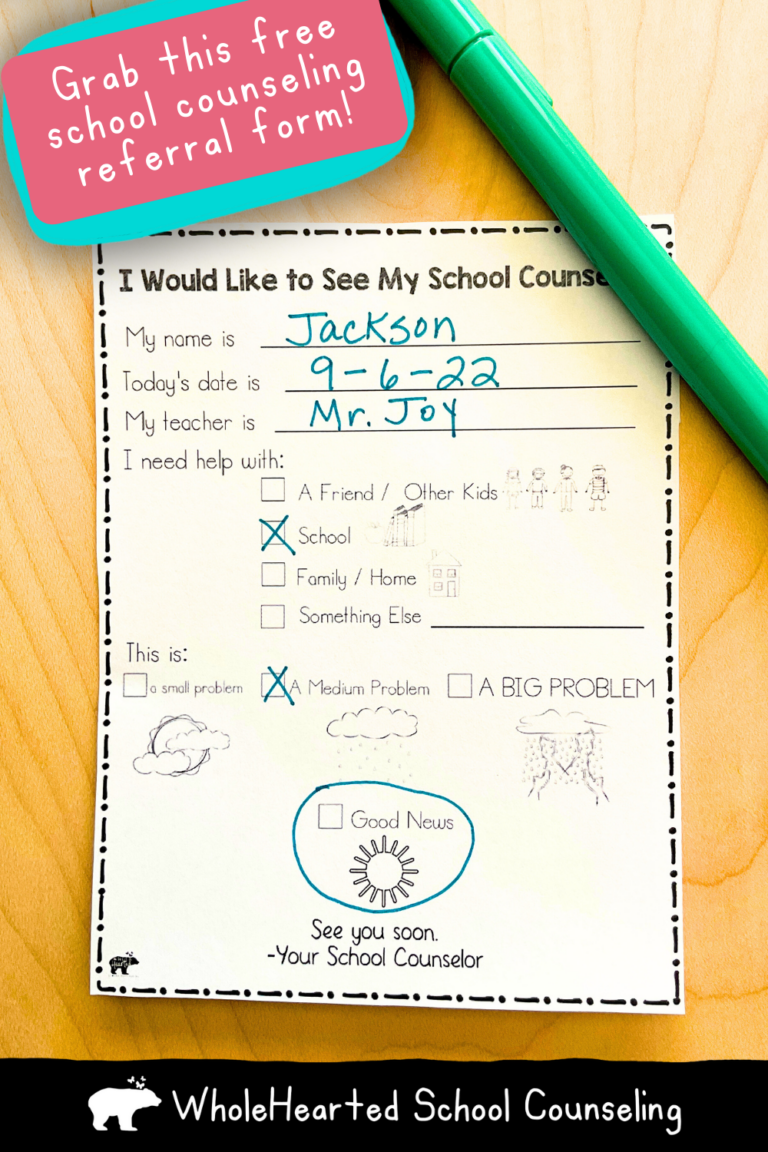 Grab this free
school counseling
referral form!
I Would Like to See My School Counse
My name is Jackson
Today's date is 9-6-22
My teacher is Mr. Joy
I need help with:
A Friend / Other Kids
School
Family / Home
Something Else
This is:
a small problem A Medium Problem A BIG PROBLEM
Good News
See you soon.
-Your School Counselor
WholeHearted School Counseling